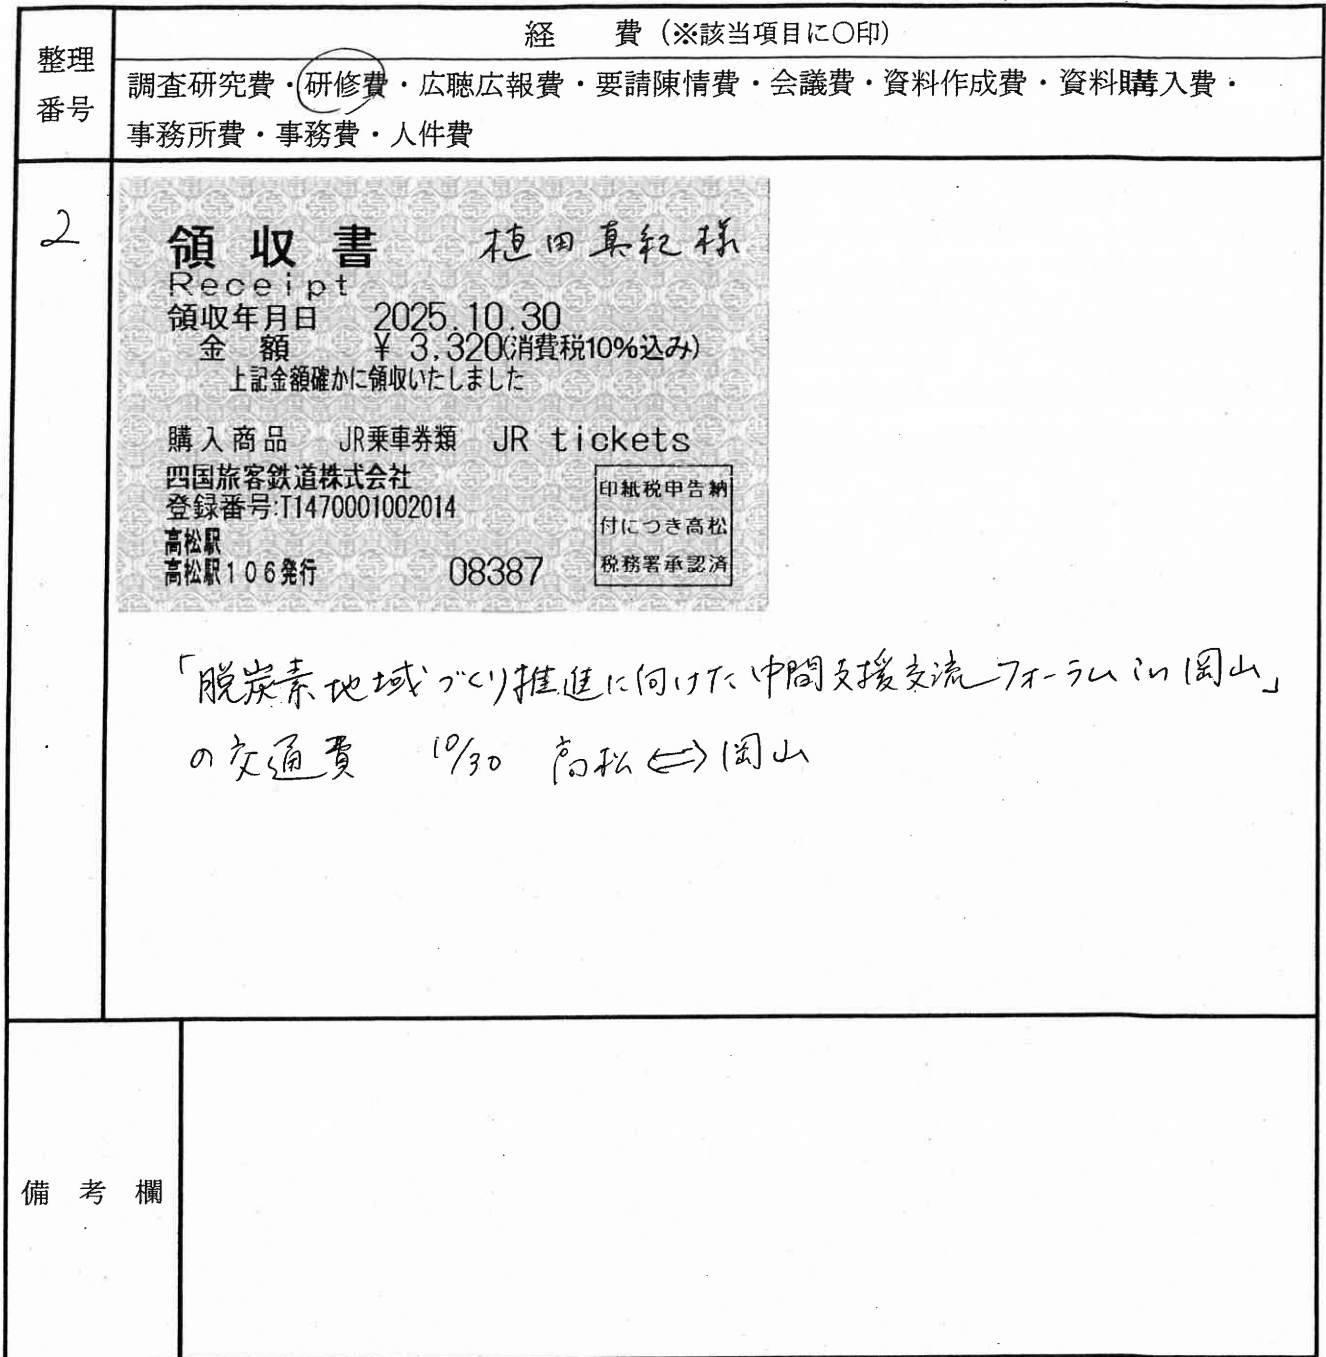 整理番号
経　費（※該当項目に〇印）
調査研究費・研修費・広聴広報費・要請陳情費・会議費・資料作成費・資料購入費・
事務所費・事務費・人件費
2
領収書　植田真紀様
Receipt
領収年月日　2025.10.30
金額　¥ 3,320(消費税10%込み)
上記金額確かに領収いたしました
購入商品　JR乗車券類　JR tickets
四国旅客鉄道株式会社
登録番号:T1470001002014
高松駅
高松駅106発行　08387
印紙税申告納
付につき高松
税務署承認済
「脱炭素地域づくり推進に向けた中間支援交流フォーラム in 岡山」
の交通費　10/30　高松⇔岡山
備考欄